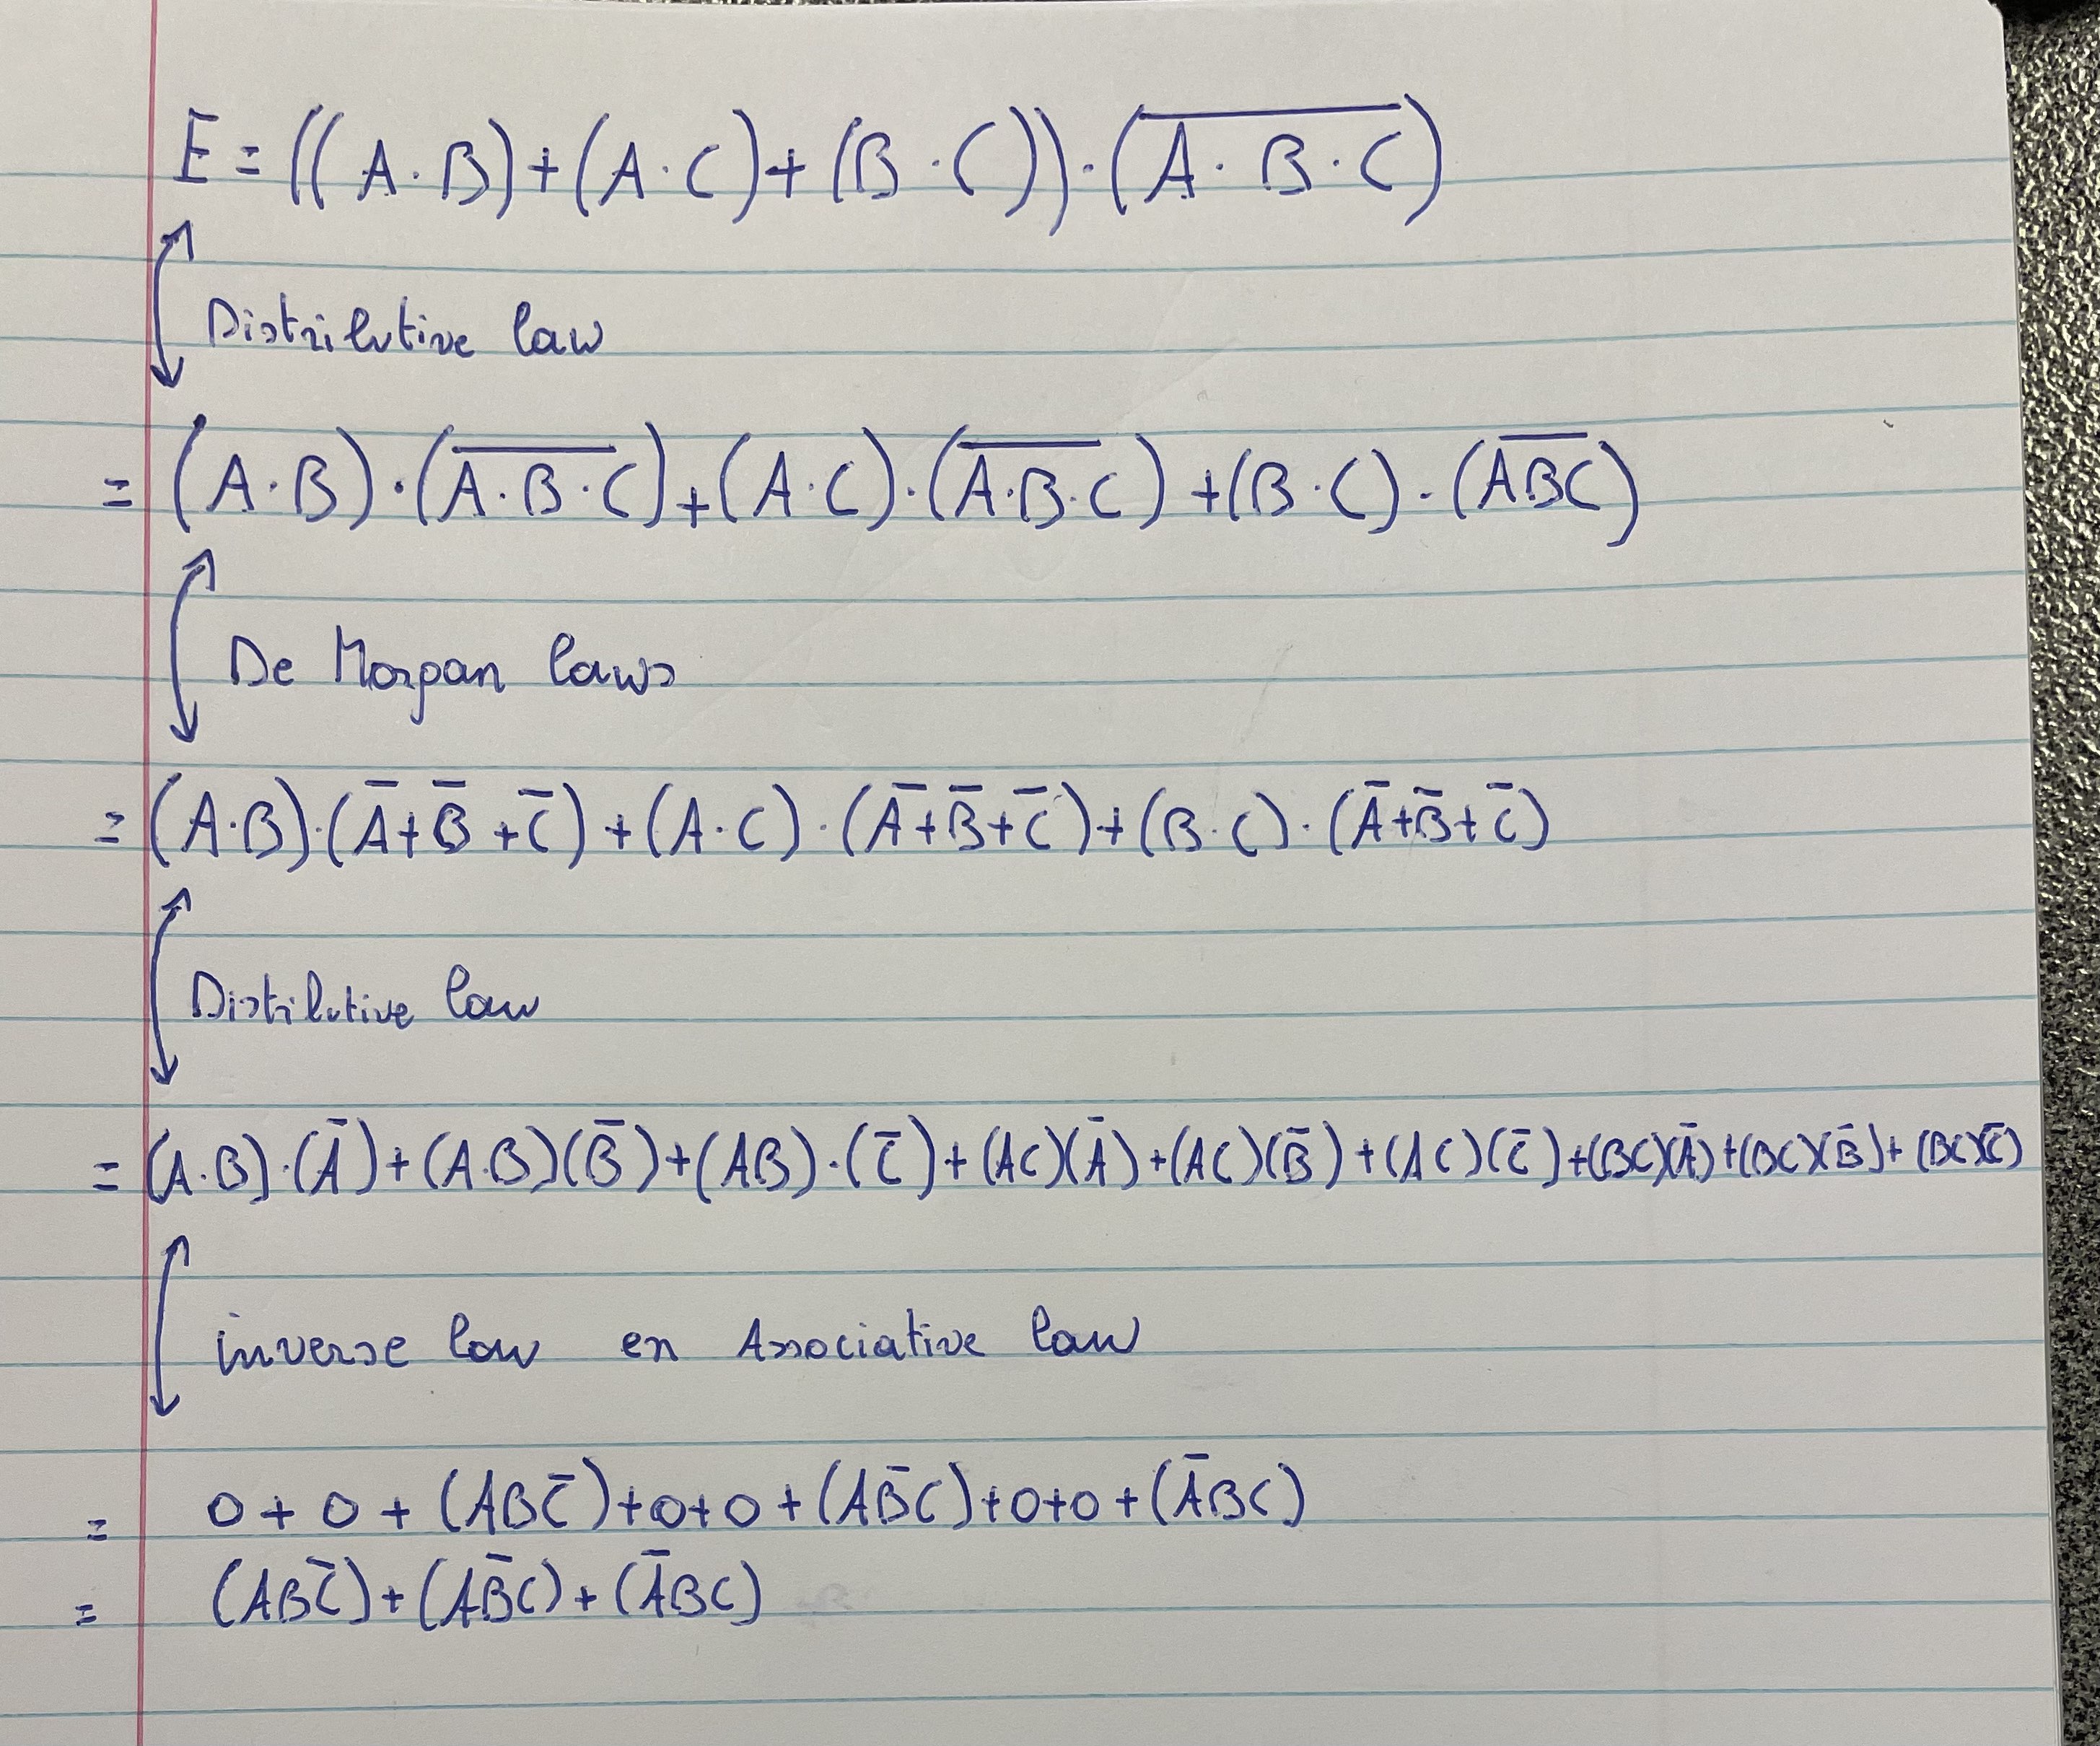 E = ((A·B)+(A·C)+(B·C))·(\overline{A·B·C})
Distributive law
= (A·B)·(\overline{A·B·C})+(A·C)·(\overline{A·B·C})+(B·C)·(\overline{ABC})
De Morgan laws
= (A·B)·(A̅+B̅+C̅)+(A·C)·(A̅+B̅+C̅)+(B·C)·(A̅+B̅+C̅)
Distributive law
= (A·B)·(A̅)+(A·B)(B̅)+(AB)·(C̅)+(AC)(A̅)+(AC)(B̅)+(AC)(C̅)+(BC)(A̅)+(BC)(B̅)+(BC)(C̅)
inverse law en Associative law
= 0+0+(ABC̅)+0+0+(AB̅C)+0+0+(A̅BC)
= (ABC̅)+(AB̅C)+(A̅BC)